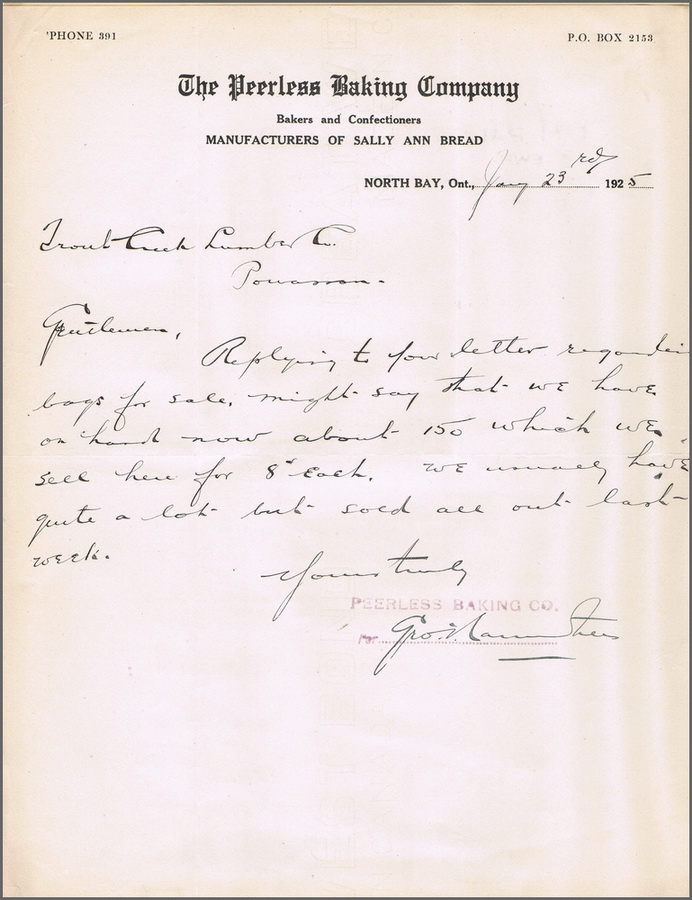 'PHONE 391
P.O. BOX 2153
The Peerless Baking Company
Bakers and Confectioners
MANUFACTURERS OF SALLY ANN BREAD
NORTH BAY, Ont., Jany 23rd 1925
Trout Creek Lumber Co.
Powassan.
Gentlemen,
Replying to your letter regardin
bags for sale, might say that we have
on hand now about 150 which we
sell here for 8¢ each. we usually have
quite a lot but sold all out last
week.
Yours truly
PEERLESS BAKING CO.
Per Geo.